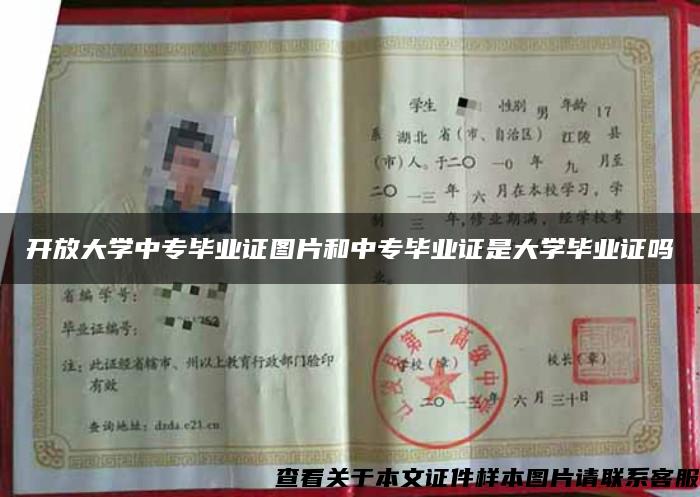 学生 性别 男 年龄 17
系 湖北 省(市、自治区) 江陵 县
(市)人。于二〇一0 年 九 月至
二〇一三 年 六 月在本校学习,学
制 三 年,修业期满,经学校考
开放大学中专毕业证图片和中专毕业证是大学毕业证吗
业。
省编学号:
毕业证编号:
注:此证经省辖市、州以上教育行政部门验印
有效
查询地址: dzda.e21.cn
学校(章) 校长(章)
江陵县第一高级中学
二〇一三年 六 月 三十日
查看关于本文证件样本图片请联系客服